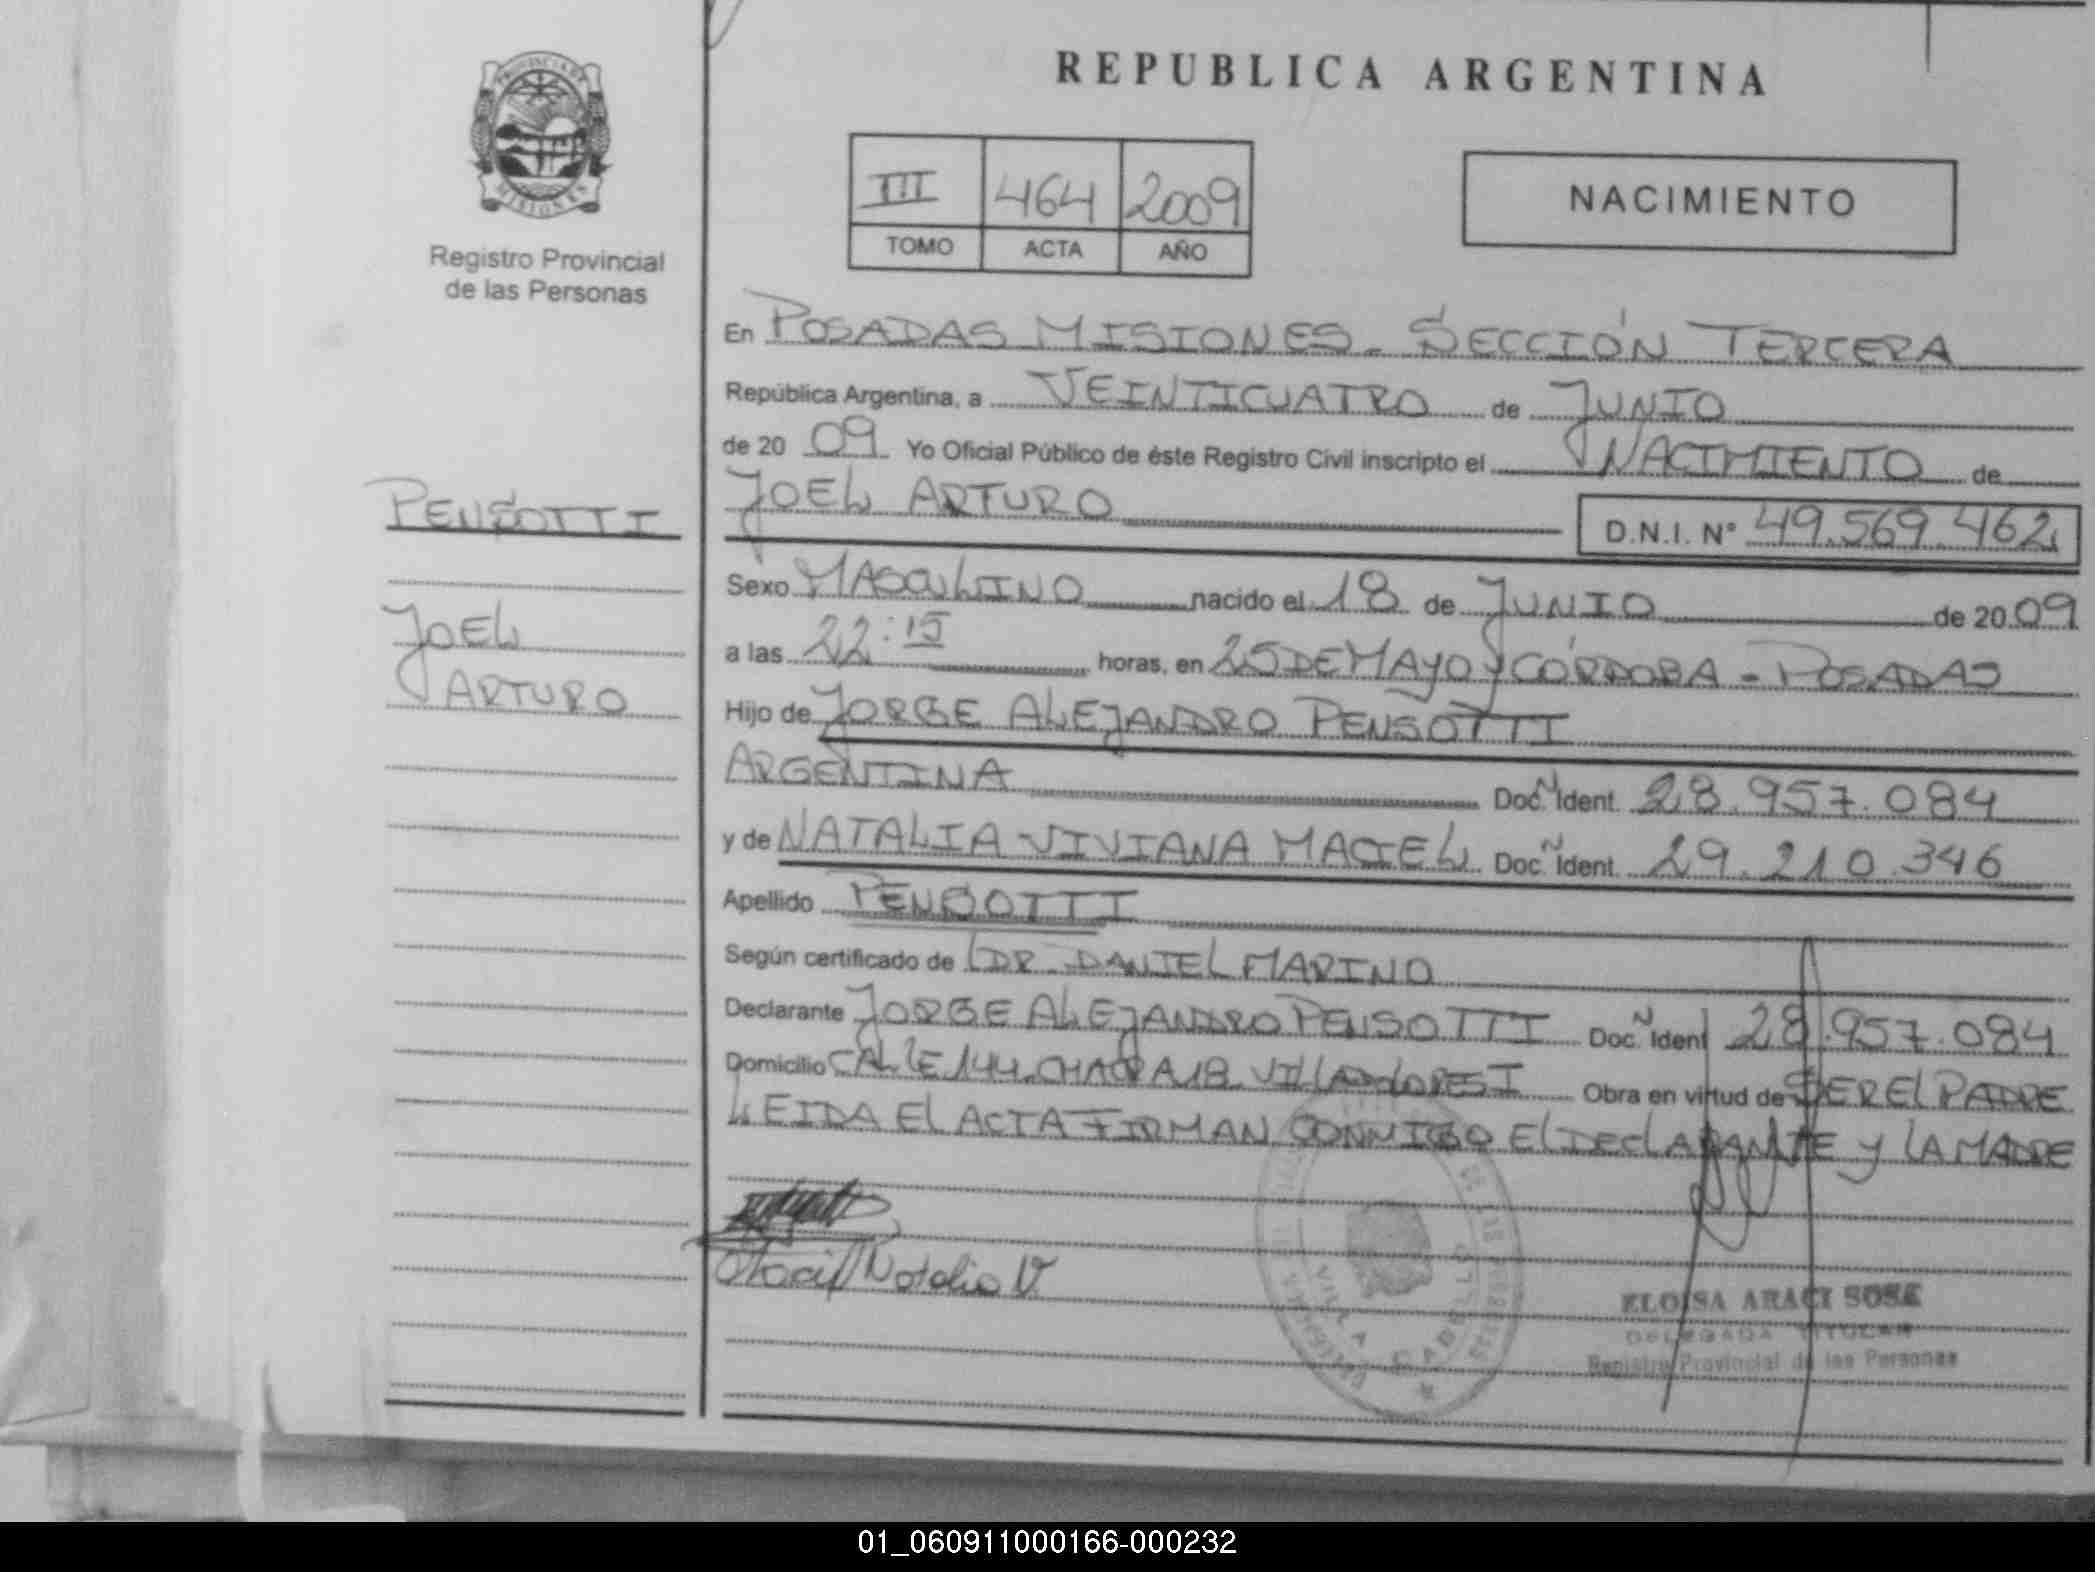 PROVINCIA DE
MISIONES
Registro Provincial
de las Personas
PENSOTTI
JOEL
ARTURO
REPUBLICA ARGENTINA
III 464 2009
TOMO ACTA AÑO
NACIMIENTO
En POSADAS MISIONES - SECCIÓN TERCERA
República Argentina, a VEINTICUATRO de JUNIO
de 20 09 Yo Oficial Público de éste Registro Civil inscripto el NACIMIENTO de
JOEL ARTURO D.N.I. Nº 49.569.462
Sexo MASCULINO nacido el 18 de JUNIO de 20 09
a las 22:15 horas, en 25 DE MAYO y CÓRDOBA - POSADAS
Hijo de JORGE ALEJANDRO PENSOTTI
ARGENTINA Doc. N Ident. 28.957.084
y de NATALIA VIVIANA MACIEL Doc. N Ident. 29.210.346
Apellido PENSOTTI
Según certificado de DR. DANIEL MARINO
Declarante JORGE ALEJANDRO PENSOTTI Doc. N Ident 28.957.084
Domicilio CALLE 144 CHACRA 18 VILLA Obra en virtud de SER EL PADRE
LEIDA EL ACTA FIRMAN CONMIGO EL DECLARANTE Y LA MADRE
Maciel Natalia V.
VILLA CABELLO
ELOISA ARACI SOSA
DELEGADA TITULAR
Registro Provincial de las Personas
01_060911000166-000232